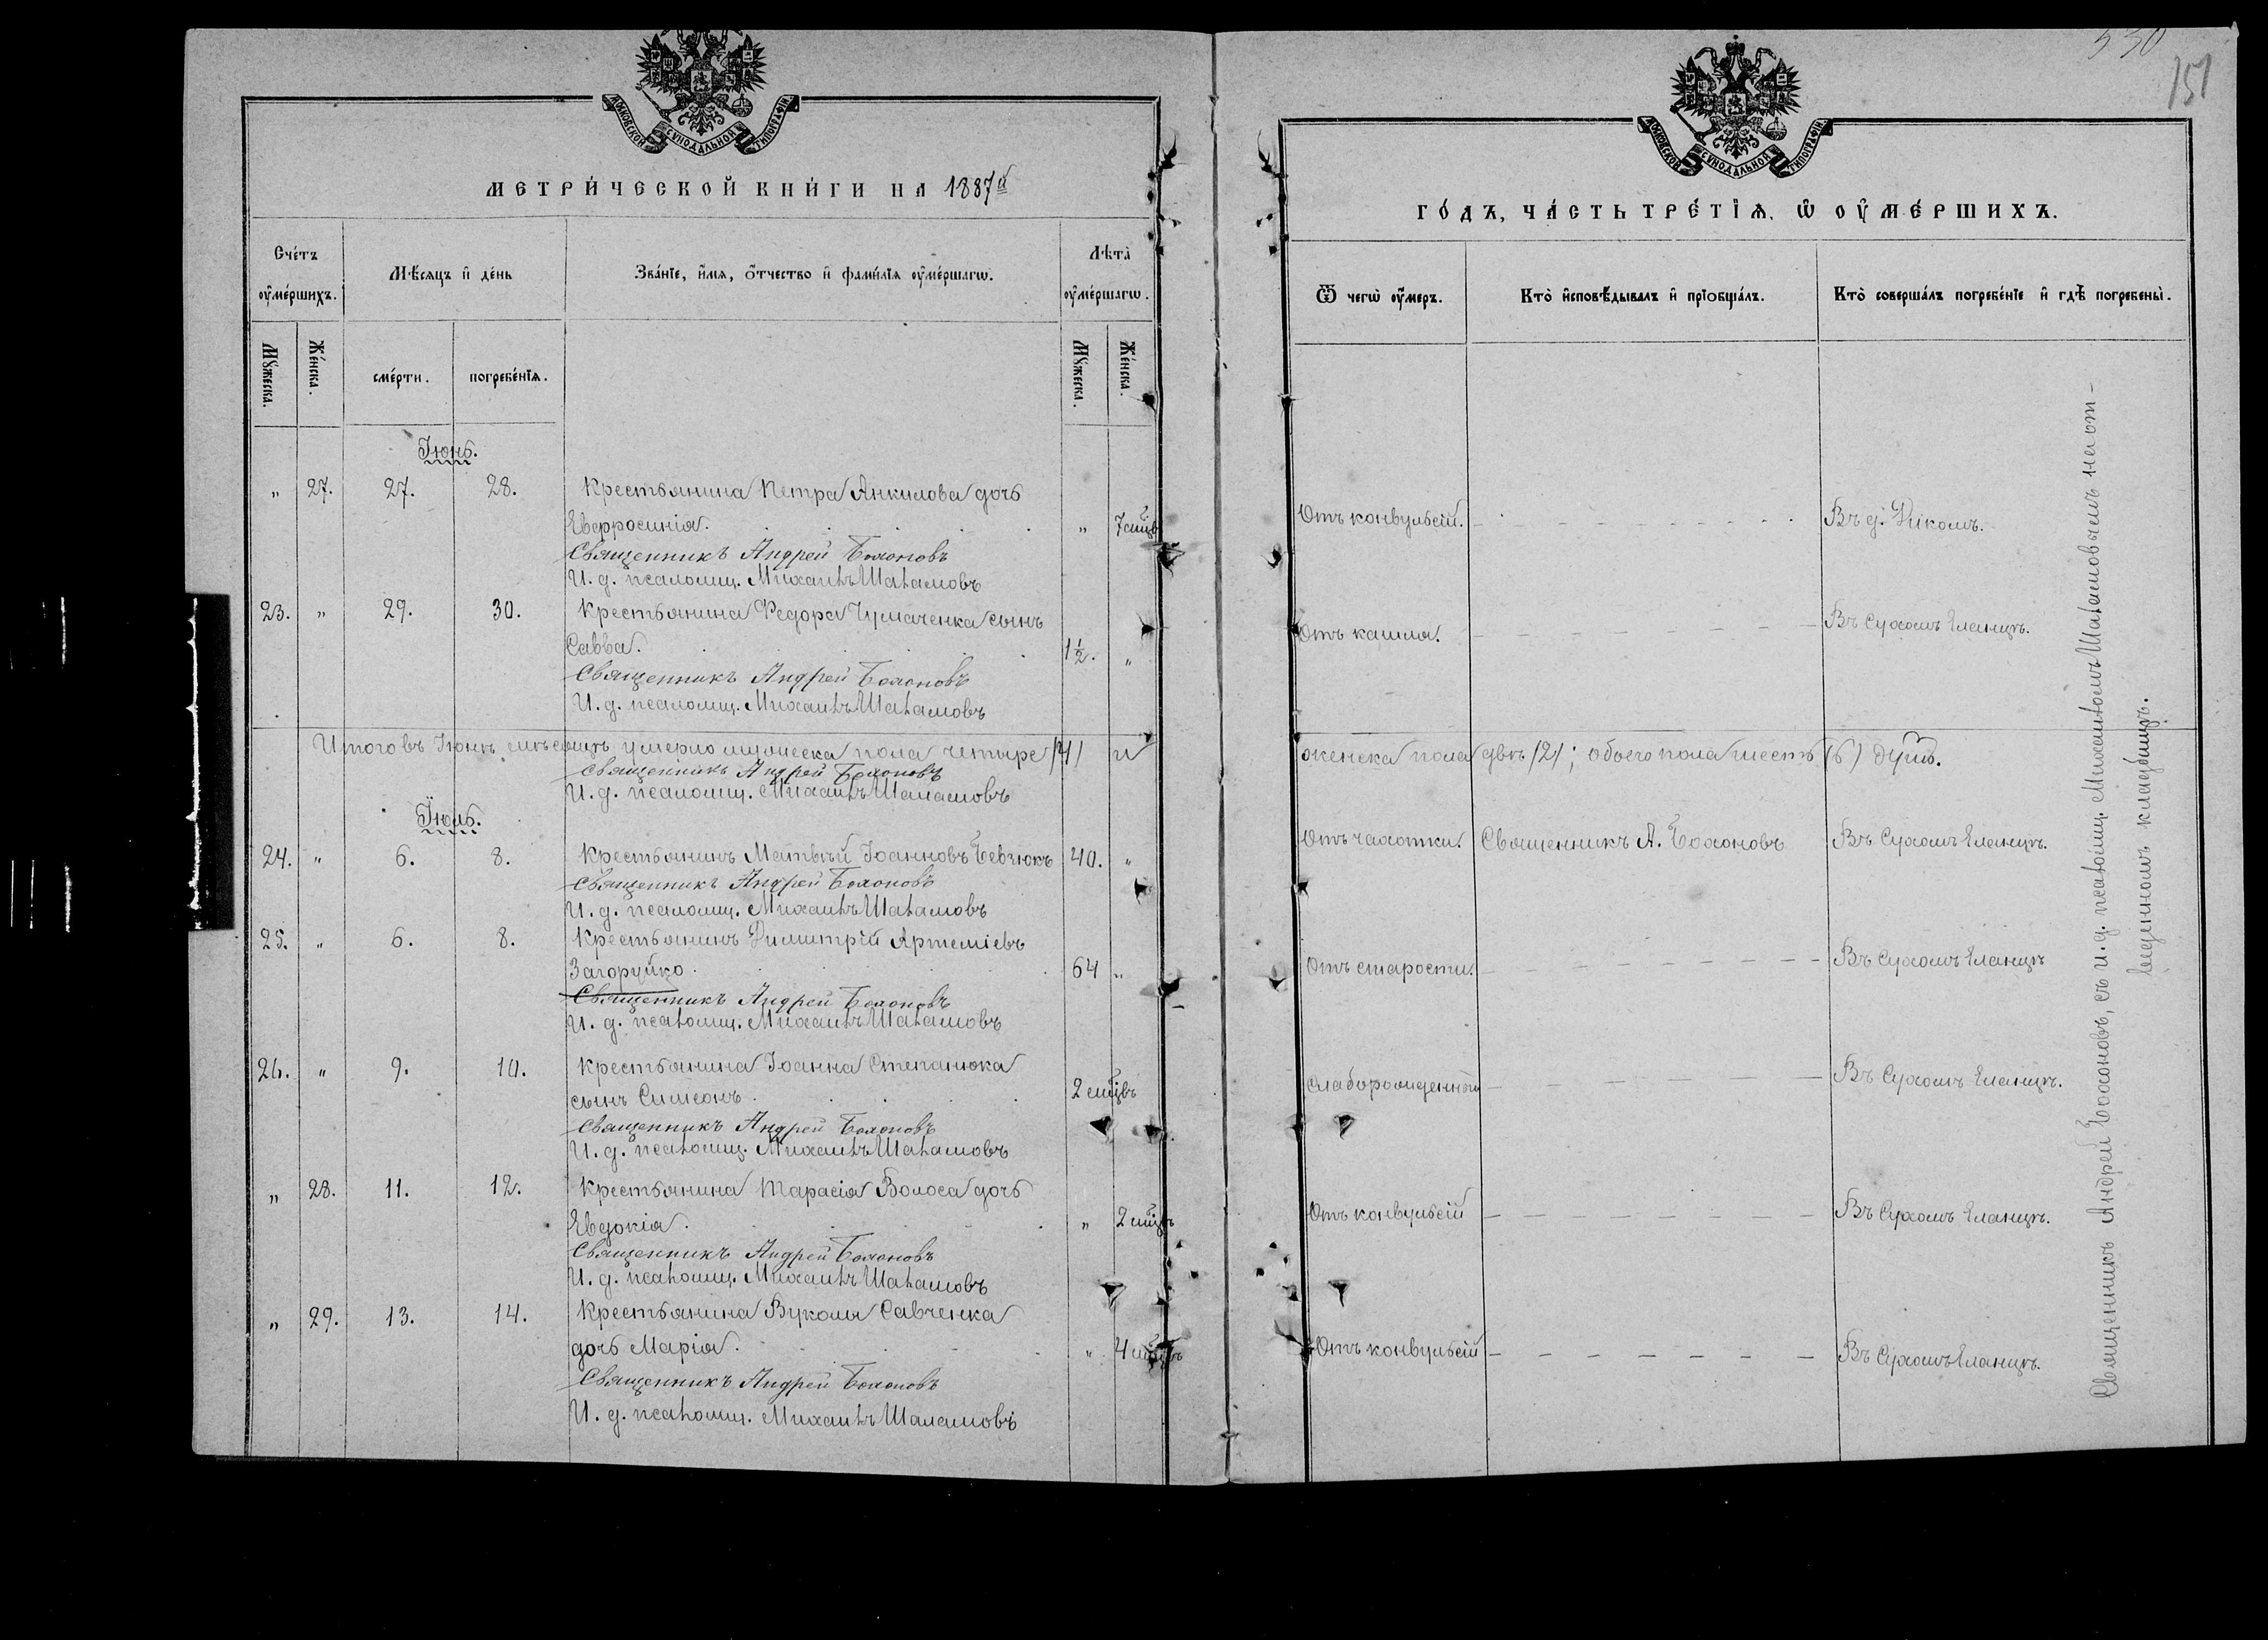 МОСКОВСКОЙ СѴНОДАЛЬНОЙ ТИПОГРАФІИ.
МЕТРИ́ЧЕСКОЙ КНИ́ГИ НА 1887й
Сче́тъ оу҆ме́ршихъ.
Мѣ́сяцъ и҆ де́нь
Зва́нїе, и҆́мя, ѻ҆́тчество и҆ фами́лїя оу҆ме́ршагѡ.
Лѣ́та оу҆ме́ршагѡ.
Мꙋ́жеска.
Же́нска.
сме́рти.
погребе́нїя.
Мꙋ́жеска.
Же́нска.
Іюнь.
" 27. 27. 28. Крестьянина Петра Анкилова дочь
Евфросинія. " 7 мцв
Священникъ Андрей Бохоновъ
И. д. псаломщ. Михаилъ Шаламовъ
23. " 29. 30. Крестьянина Федора Чумаченка сынъ
Савва. 1½. "
Священникъ Андрей Бохоновъ
И. д. псаломщ. Михаилъ Шаламовъ
Итого въ Іюнѣ мѣсяцѣ умерло мужеска пола четыре (4) и
Священникъ Андрей Бохоновъ
И. д. псаломщ. Михаилъ Шаламовъ
Іюль.
24. " 6. 8. Крестьянинъ Матвѣй Іоанновъ Бевзюкъ 40. "
Священникъ Андрей Бохоновъ
И. д. псаломщ. Михаилъ Шаламовъ
25. " 6. 8. Крестьянинъ Димитрій Артеміевъ
Загоруйко. 64 "
Священникъ Андрей Бохоновъ
И. д. псаломщ. Михаилъ Шаламовъ
26. " 9. 10. Крестьянина Іоанна Степанюка
сынъ Симеонъ. 2 мцвъ
Священникъ Андрей Бохоновъ
И. д. псаломщ. Михаилъ Шаламовъ
" 28. 11. 12. Крестьянина Тарасія Волоса дочь
Евдокія. " 2 мцвъ
Священникъ Андрей Бохоновъ
И. д. псаломщ. Михаилъ Шаламовъ
" 29. 13. 14. Крестьянина Вукола Савченка
дочь Марія. " 4 мцвъ
Священникъ Андрей Бохоновъ
И. д. псаломщ. Михаилъ Шаламовъ
530
151
МОСКОВСКОЙ СѴНОДАЛЬНОЙ ТИПОГРАФІИ.
ГО́ДЪ, ЧА́СТЬ ТРЕ́ТЇЯ, Ѡ҆ ОУ҆МЕ́РШИХЪ.
Ѿ чегѡ̀ оу҆́меръ.
Кто̀ и҆сповѣ́дывалъ и҆ прїобща́лъ.
Кто̀ соверша́лъ погребе́нїе и҆ гдѣ̀ погребены̀.
Отъ конвульсій. Въ д. Дикомъ.
Отъ кашля. Въ Сухомъ Еланцѣ.
женска пола двѣ (2); обоего пола шесть (6) душъ.
Отъ чахотки. Священникъ А. Бохоновъ Въ Сухомъ Еланцѣ.
Отъ старости. Въ Сухомъ Еланцѣ
Слаборожденный Въ Сухомъ Еланцѣ.
Отъ конвульсій Въ Сухомъ Еланцѣ.
Отъ конвульсій Въ Сухомъ Еланцѣ.
Священникъ Андрей Бохоновъ, съ и. д. псаломщ. Михаиломъ Шаламовымъ на от-
веденномъ кладбищѣ.